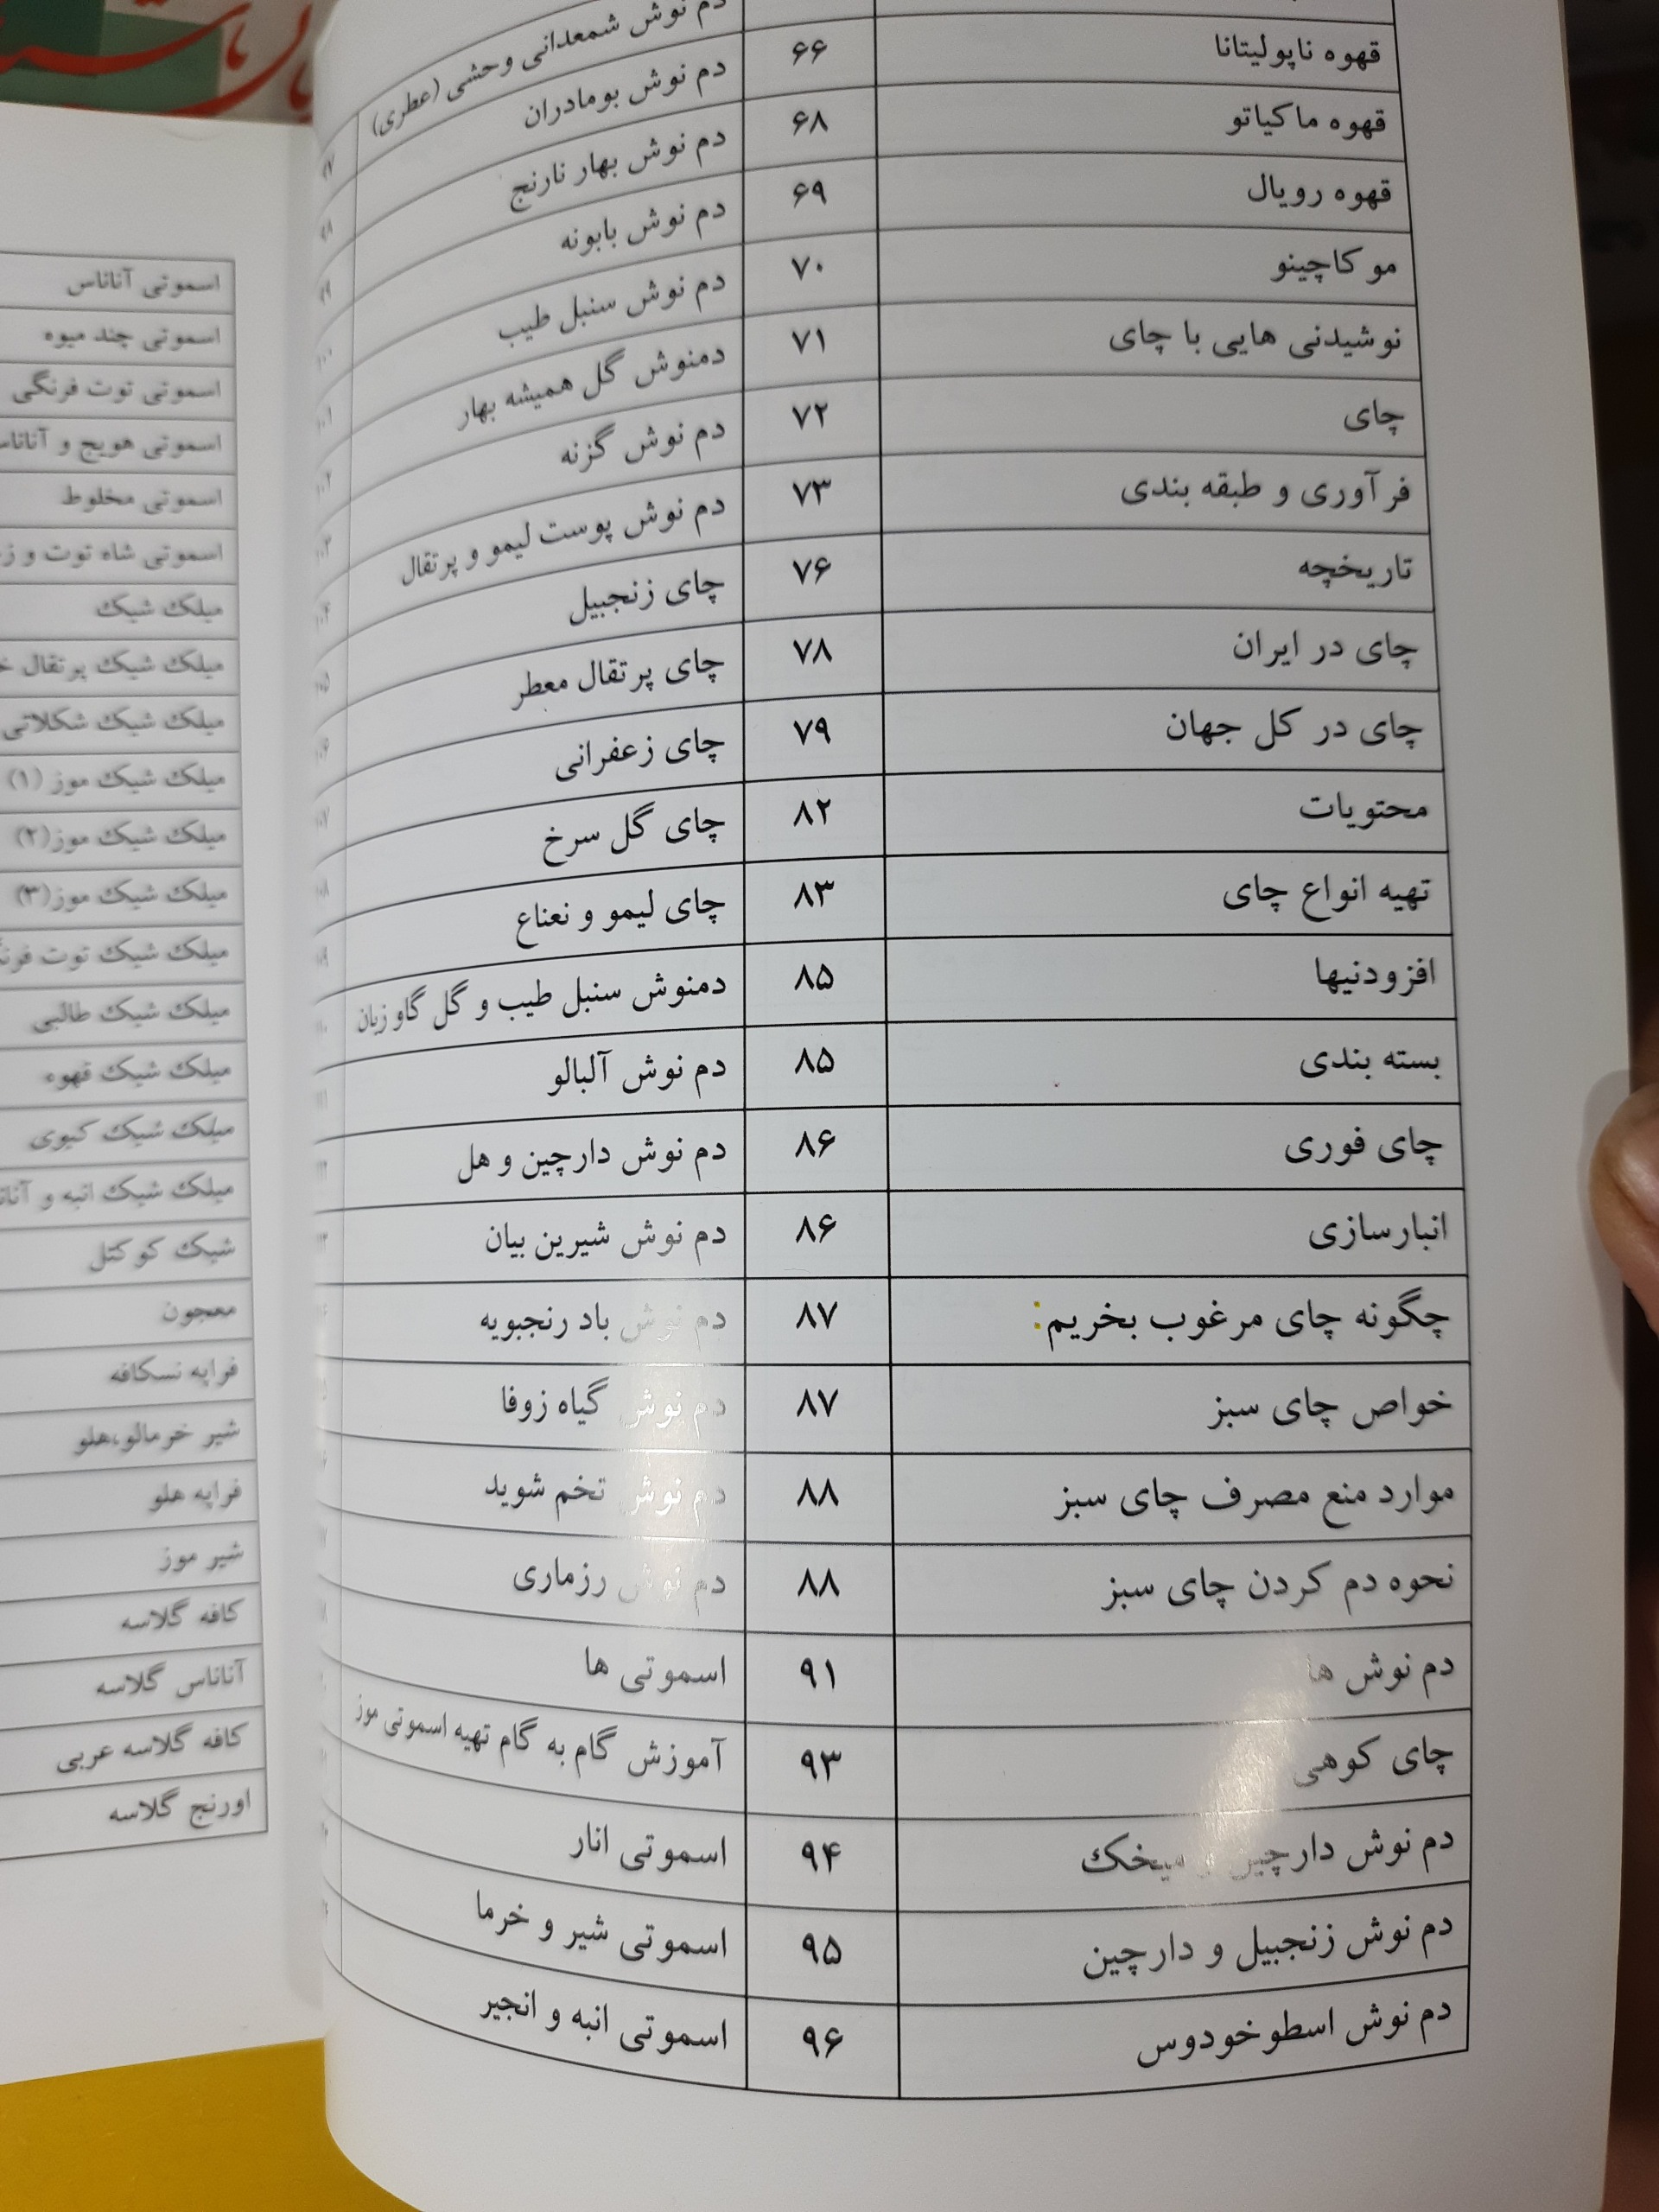 قهوه ناپولیتانا ۶۶
قهوه ماکیاتو ۶۸
قهوه رویال ۶۹
موکاچینو ۷۰
نوشیدنی هایی با چای ۷۱
چای ۷۲
فرآوری و طبقه بندی ۷۳
تاریخچه ۷۶
چای در ایران ۷۸
چای در کل جهان ۷۹
محتویات ۸۲
تهیه انواع چای ۸۳
افزودنیها ۸۵
بسته بندی ۸۵
چای فوری ۸۶
انبارسازی ۸۶
چگونه چای مرغوب بخریم: ۸۷
خواص چای سبز ۸۷
موارد منع مصرف چای سبز ۸۸
نحوه دم کردن چای سبز ۸۸
دم نوش ها ۹۱
چای کوهی ۹۳
دم نوش دارچین و میخک ۹۴
دم نوش زنجبیل و دارچین ۹۵
دم نوش اسطوخودوس ۹۶
دم نوش شمعدانی وحشی (عطری) ۹۷
دم نوش بومادران ۹۸
دم نوش بهار نارنج ۹۹
دم نوش بابونه ۱۰۰
دم نوش سنبل طیب ۱۰۱
دمنوش گل همیشه بهار ۱۰۲
دم نوش گزنه ۱۰۳
دم نوش پوست لیمو و پرتقال ۱۰۴
چای زنجبیل ۱۰۵
چای پرتقال معطر ۱۰۶
چای زعفرانی ۱۰۷
چای گل سرخ ۱۰۸
چای لیمو و نعناع ۱۰۹
دمنوش سنبل طیب و گل گاو زبان ۱۱۰
دم نوش آلبالو ۱۱۱
دم نوش دارچین و هل
دم نوش شیرین بیان
دم نوش باد رنجبویه
دم نوش گیاه زوفا
دم نوش تخم شوید
دم نوش رزماری
اسموتی ها
آموزش گام به گام تهیه اسموتی موز
اسموتی انار
اسموتی شیر و خرما
اسموتی انبه و انجیر
اسموتی آناناس
اسموتی چند میوه
اسموتی توت فرنگی
اسموتی هویج و آناناس
اسموتی مخلوط
اسموتی شاه توت و
میلک شیک
میلک شیک پرتقال
میلک شیک شکلاتی
میلک شیک موز (۱)
میلک شیک موز(۲)
میلک شیک موز(۳)
میلک شیک توت
میلک شیک طالبی
میلک شیک قهوه
میلک شیک کیوی
میلک شیک انبه و
شیک کوکتل
معجون
فراپه نسکافه
شیر خرمالو،هلو
فراپه هلو
شیر موز
کافه گلاسه
آناناس گلاسه
کافه گلاسه عربی
اورنج گلاسه